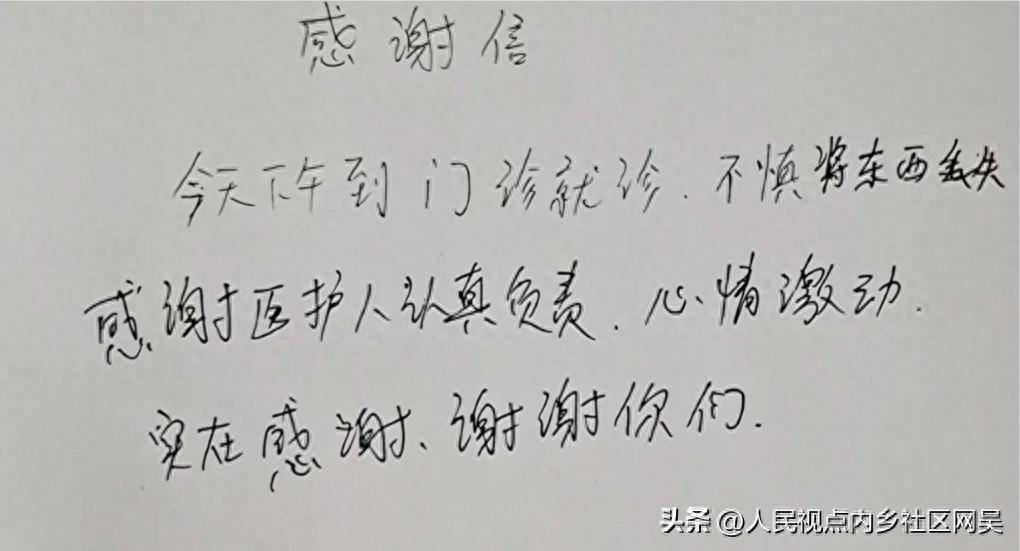 感谢信
今天下午到门诊就诊.不慎将东西丢失
感谢医护人认真负责.心情激动.
实在感谢、谢谢你们.
头条 @人民视点内乡社区网吴